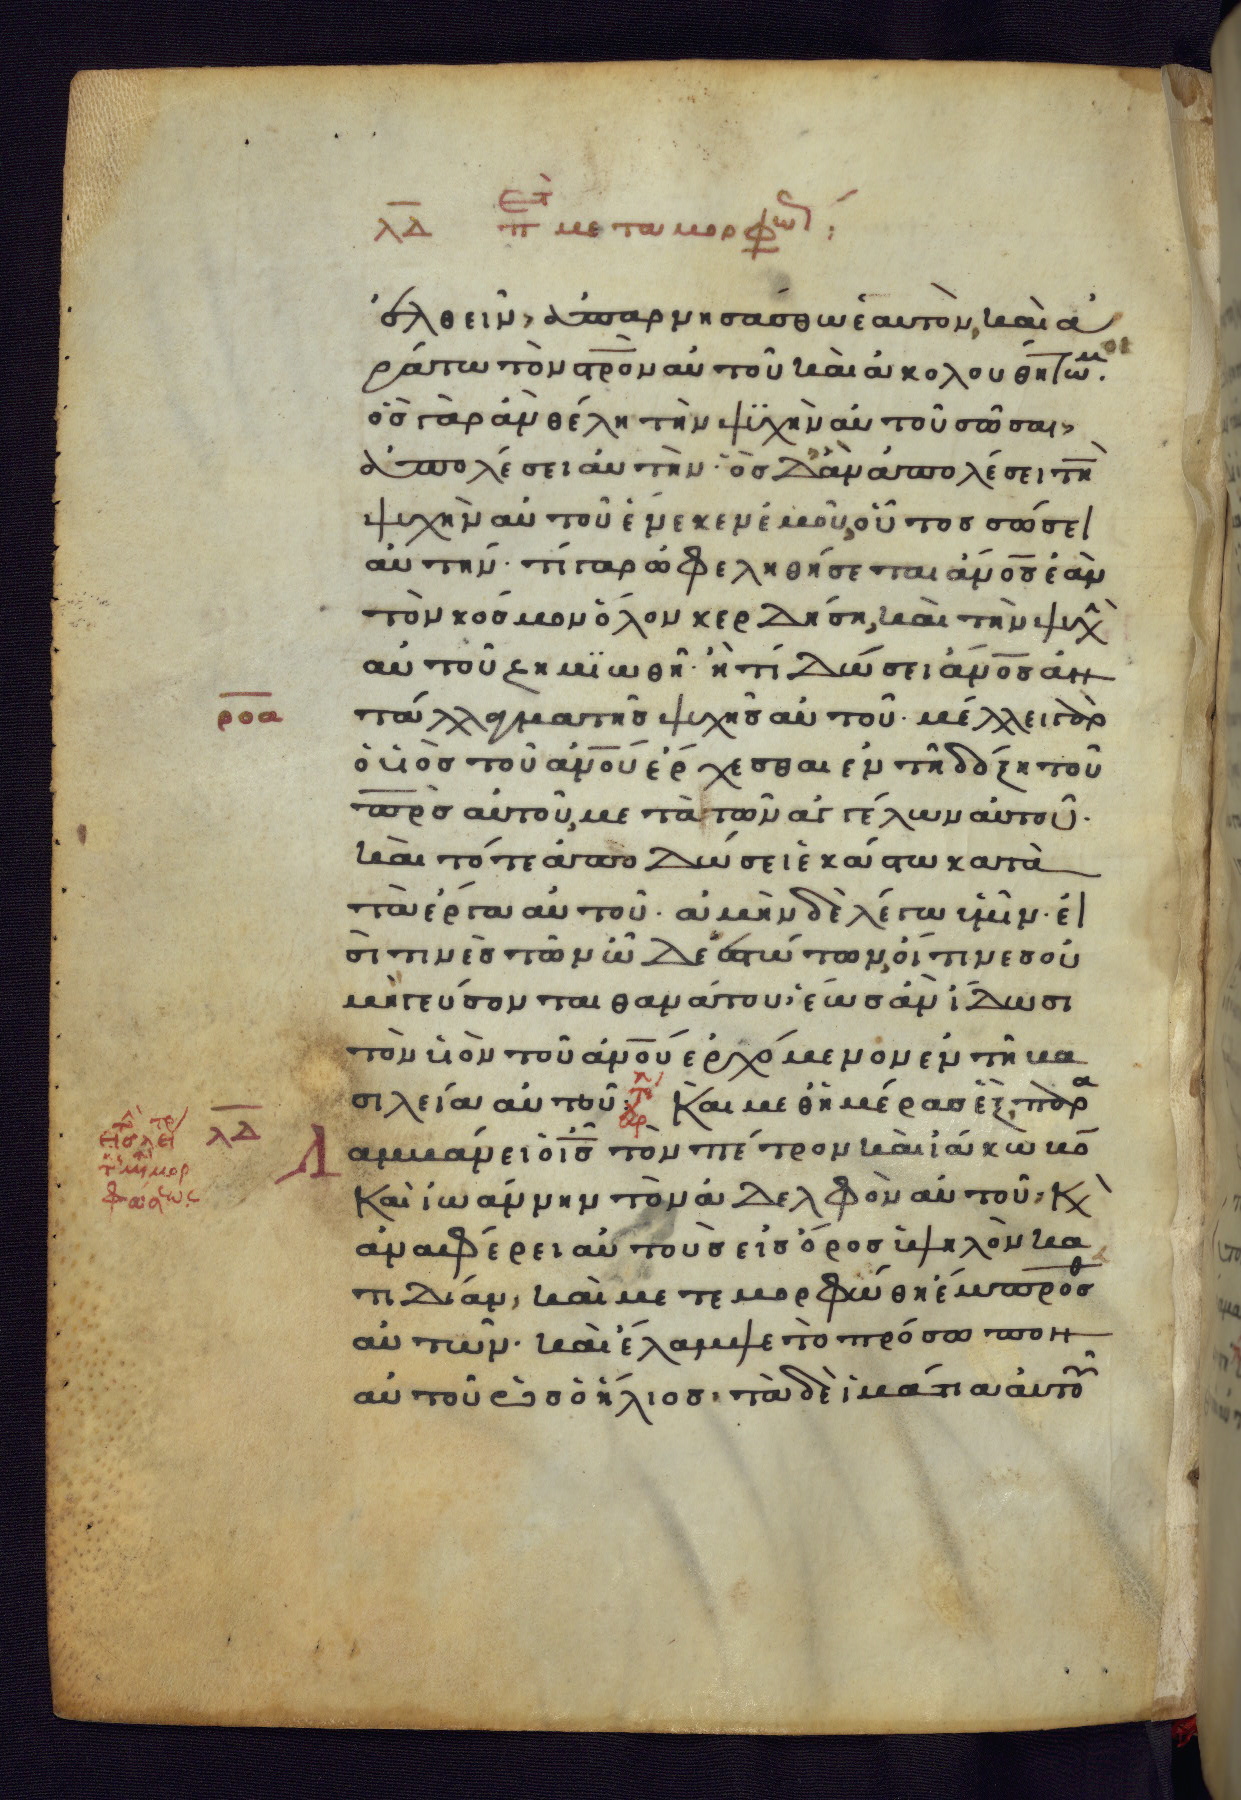 λδ π μεταμορφω
ἐλθεῖν, ἀπαρνησάσθω ἑαυτὸν, καὶ ἀ
ράτω τὸν στρὸν αὐτοῦ καὶ ἀκολουθήτω μ.
ὃς γὰρ ἂν θέλη τὴν ψϊχὴν αὐτοῦ σῶσαι,
ἀπολέσει αὐτὴν· ὃς δ' ἂν ἀπολέσει τὴ
ψυχὴν αὐτοῦ ἕνεκεν ἐμοῦ, οὗτος σώσει
αὐτήν· τί γαρ ὠφεληθήσεται ἄνος ἐὰν
τὸν κόσμον ὅλον κερδήση, καὶ τὴν ψυχὴ
αὐτοῦ ζημϊωθῆ· ἢ τί δώσει ἄνος ἀν
ροα
τάλλαγμα τῆς ψυχῆς αὐτοῦ· μέλλει γὰρ
ὁ υἱὸς τοῦ ἀνού ἔρχεσθαι ἐν τῆ δόξη τοῦ
πρὸς αὐτοῦ, μετὰ τῶν ἀγγέλων αὐτοῦ·
καὶ τότε ἀποδώσει ἑκάστω κατὰ
τὰ ἔργα αὐτοῦ· ἀμὴν δὲ λέγω ὑμῖν· εἰ
σὶ τινὲς τῶν ὧδε ἑστώτων, οἵτινες οὐ
μὴ γεύσονται θανάτου· ἕως ἂν ἴδωσι
τὸν υἱὸν τοῦ ἀνού ἐρχόμενον ἐν τῆ βα
σιλεία αὐτοῦ· Καὶ μεθ' ἡμέρας ἓξ, παρα
λδ
λαμβάνει ὁ ις τὸν πέτρον καὶ ἰάκωβο
Καὶ ἰωάννην τὸν ἀδελφὸν αὐτοῦ· Κὶ
ἀναφέρει αὐτοὺς εἰς ὄρος ὑψηλὸν κα
τιδίαν, καὶ μετεμορφώθη ἔμπροσθ
αὐτῶν· καὶ ἔλαμψε τὸ πρόσωπον
αὐτοῦ ὡς ὁ ἥλιος· τὰ δὲ ἱμάτια αὐτοῦ